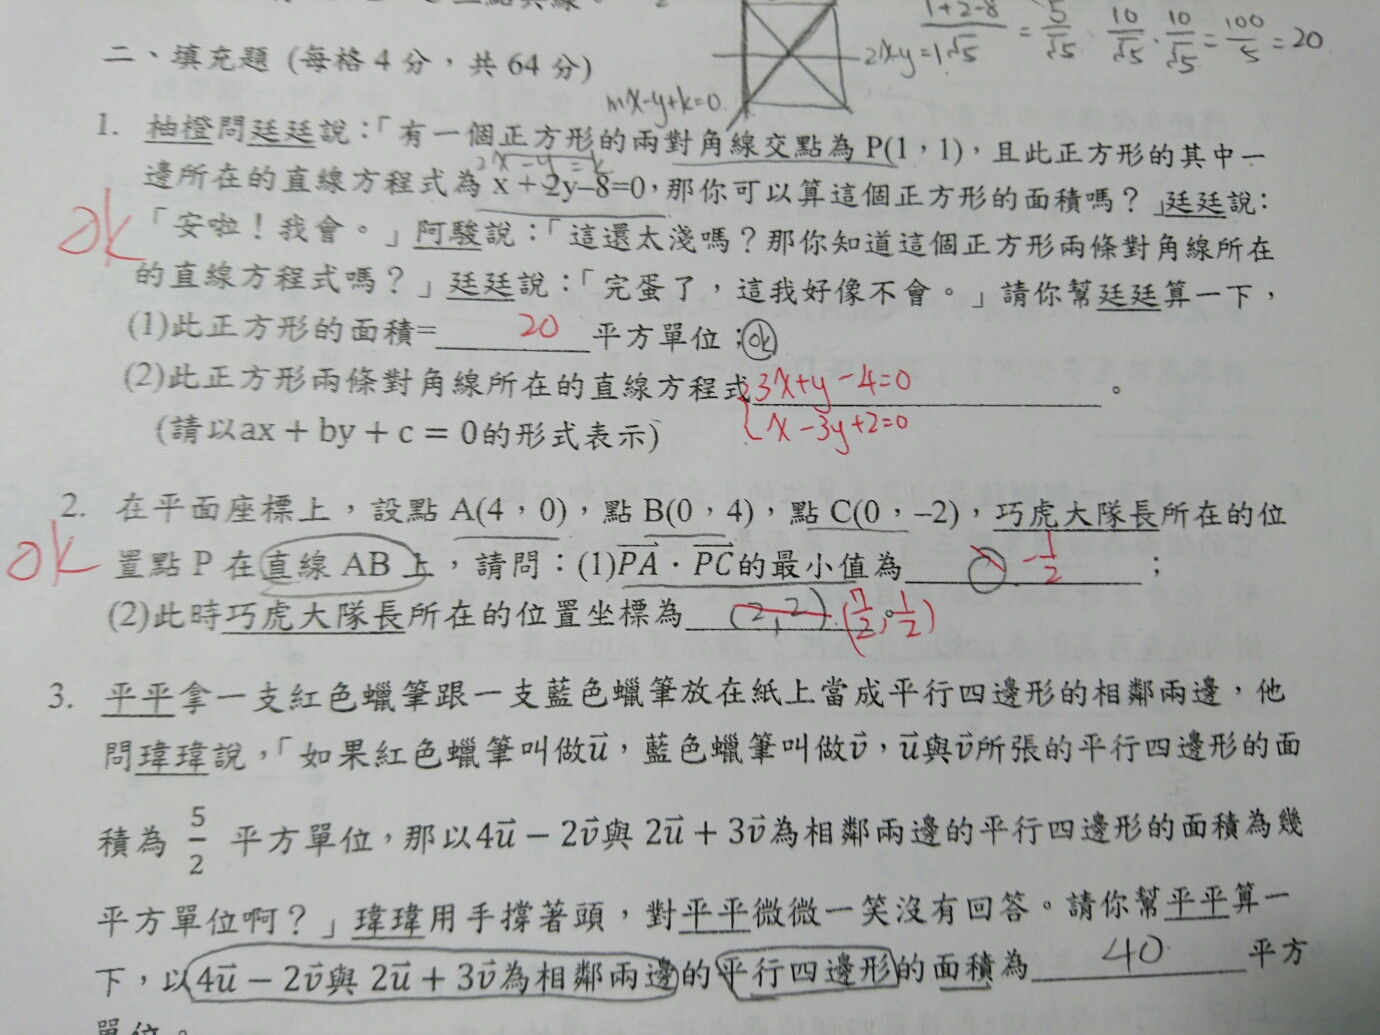 1+2-8/√5 = 5/√5 , 10/√5 · 10/√5 = 100/5 = 20
二、填充題 (每格 4 分，共 64 分)
mx-y+k=0
1. 柚橙問廷廷說：「有一個正方形的兩對角線交點為 P(1，1)，且此正方形的其中一
2x-y=k
邊所在的直線方程式為 x + 2y–8=0，那你可以算這個正方形的面積嗎？」廷廷說：
ok
「安啦！我會。」阿駿說：「這還太淺嗎？那你知道這個正方形兩條對角線所在
的直線方程式嗎？」廷廷說：「完蛋了，這我好像不會。」請你幫廷廷算一下，
(1)此正方形的面積= 20 平方單位；ok
(2)此正方形兩條對角線所在的直線方程式 3x+y-4=0 。
x-3y+2=0
(請以ax + by + c = 0的形式表示)
2. 在平面座標上，設點 A(4，0)，點 B(0，4)，點 C(0，–2)，巧虎大隊長所在的位
ok
置點 P 在直線 AB 上，請問：(1)PA⃗ · PC⃗的最小值為 -1/2 ；
(2)此時巧虎大隊長所在的位置坐標為 (2,2) (7/2, 1/2) 。
3. 平平拿一支紅色蠟筆跟一支藍色蠟筆放在紙上當成平行四邊形的相鄰兩邊，他
問瑋瑋說，「如果紅色蠟筆叫做u⃗，藍色蠟筆叫做v⃗，u⃗與v⃗所張的平行四邊形的面
積為 5/2 平方單位，那以4u⃗ − 2v⃗與 2u⃗ + 3v⃗為相鄰兩邊的平行四邊形的面積為幾
平方單位啊？」瑋瑋用手撐著頭，對平平微微一笑沒有回答。請你幫平平算一
下，以4u⃗ − 2v⃗與 2u⃗ + 3v⃗為相鄰兩邊的平行四邊形的面積為 40 平方
單位。